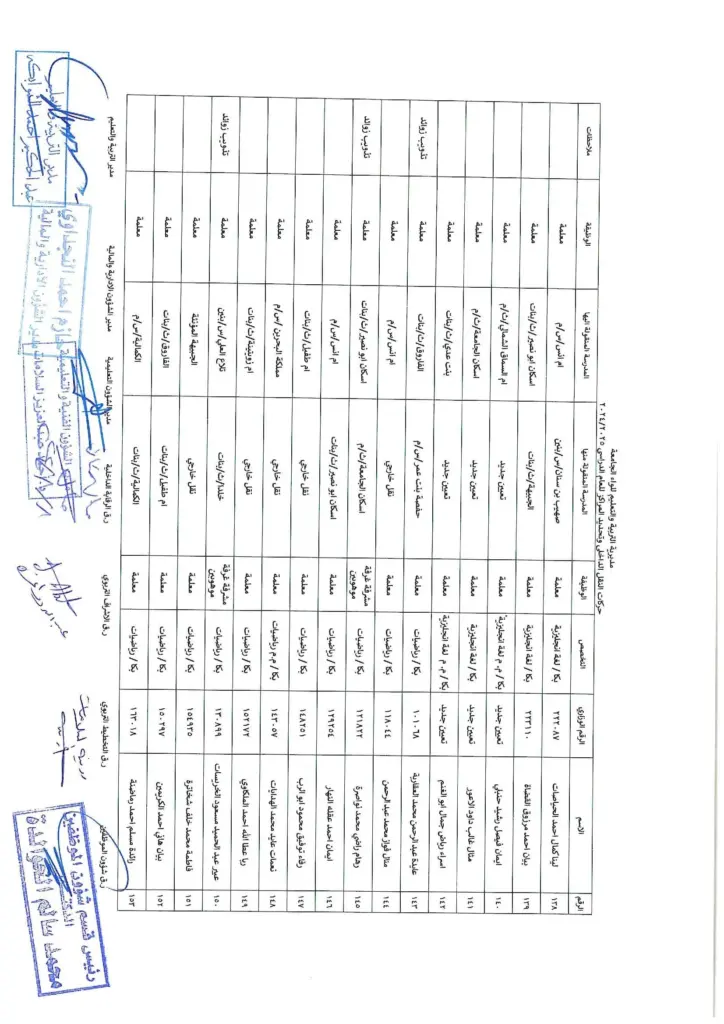 مديرية التربية والتعليم للواء الجامعة
حركات النقل الداخلي وتحديد المراكز للعام الدراسي ٢٠٢٤/٢٠٢٥
الرقم الاسم الرقم الوزاري التخصص الوظيفة المدرسة المنقولة منها المدرسة المنقولة اليها الوظيفة ملاحظات
١٣٨ لينا كمال احمد الحياصات ٢٢٢٠٨٧ بكا / لغة انجليزية معلمة صهيب بن سنان/س/بنين ام انس/س/م معلمة
١٣٩ بيان احمد مرزوق القضاة ٢٢٣١١٠ بكا / لغة انجليزية معلمة الجبيهة/ث/بنات اسكان ابو نصير/ث/بنات معلمة
١٤٠ ايمان فيصل رشيد حنبلي تعيين جديد بكا / م. م لغة انجليزية معلمة تعيين جديد ام السماق الشمالي/ث/م معلمة
١٤١ منال غالب داود الاعور تعيين جديد بكا / لغة انجليزية معلمة تعيين جديد اسكان الجامعة/ث/م معلمة
١٤٢ اسراء رياض جمال ابو الغنم تعيين جديد بكا / م. م لغة انجليزية معلمة تعيين جديد بنت عدي/ث/بنات معلمة
١٤٣ عايدة عبد الرحمن محمد العقاربة ١٠١٠٦٨ بكا / رياضيات معلمة حفصة بنت عمر/س/م الفاروق/ث/بنات معلمة تذويب زوائد
١٤٤ منال فواز محمد عبد الرحمن ١١٨٠٤٤ بكا / رياضيات معلمة نقل خارجي ام انس/س/م معلمة
١٤٥ وهام راضي محمد نواصرة ١٢١٨٢٢ بكا / رياضيات مشرفة غرفة موهوبين اسكان الجامعة/ث/م اسكان ابو نصير/ث/بنات معلمة تذويب زوائد
١٤٦ ايمان احمد عقله النهار ١٢٩٢٥٤ بكا / رياضيات معلمة اسكان ابو نصير/ث/بنات ام انس/س/م معلمة
١٤٧ رفاء توفيق محمود ابو الرب ١٤٨٢٥١ بكا / رياضيات معلمة نقل خارجي ام طفيل/ث/بنات معلمة
١٤٨ نعمات عايد محمد الهدايات ١٤٣٠٥٧ بكا / م.م رياضيات معلمة نقل خارجي مملكة البحرين/س/م معلمة
١٤٩ ربا عطا الله احمد الملكاوي ١٥٢١٧٢ بكا / رياضيات معلمة نقل خارجي ام زويتينة/ث/بنات معلمة
١٥٠ عبير عبد الحميد مسعود الخريسات ١٣٠٨٩٩ بكا / رياضيات مشرفة غرفة موهوبين خلدا/ث/بنات تلاع العلي/س/بنين معلمة تذويب زوائد
١٥١ فاطمة محمد خلف شخاترة ١٥٤٩٣٥ بكا / رياضيات معلمة نقل خارجي الجبيهة المؤنثة معلمة
١٥٢ بيان هاني احمد الكريمين ١٥٠٢٩٧ بكا / رياضيات معلمة ام طفيل/ث/بنات الفاروق/ث/بنات معلمة
١٥٣ رائدة مسلم احمد رماضنة ١٦٣٠١٨ بكا / رياضيات معلمة الكمالية/ث/بنات الكمالية/س/م معلمة
ر.ق شؤون الموظفين ر.ق التخطيط التربوي ر.ق الاشراف التربوي ر.ق الرقابة الداخلية مدير الشؤون التعليمية مدير الشؤون الادارية والمالية مدير التربية والتعليم
رئيس قسم شؤون الموظفين
محمد سالم الخوالدة
الشؤون الفنية والتعليمية
حازم احمد النجداوي
مدير الشؤون الادارية والمالية
مدير التربية والتعليم